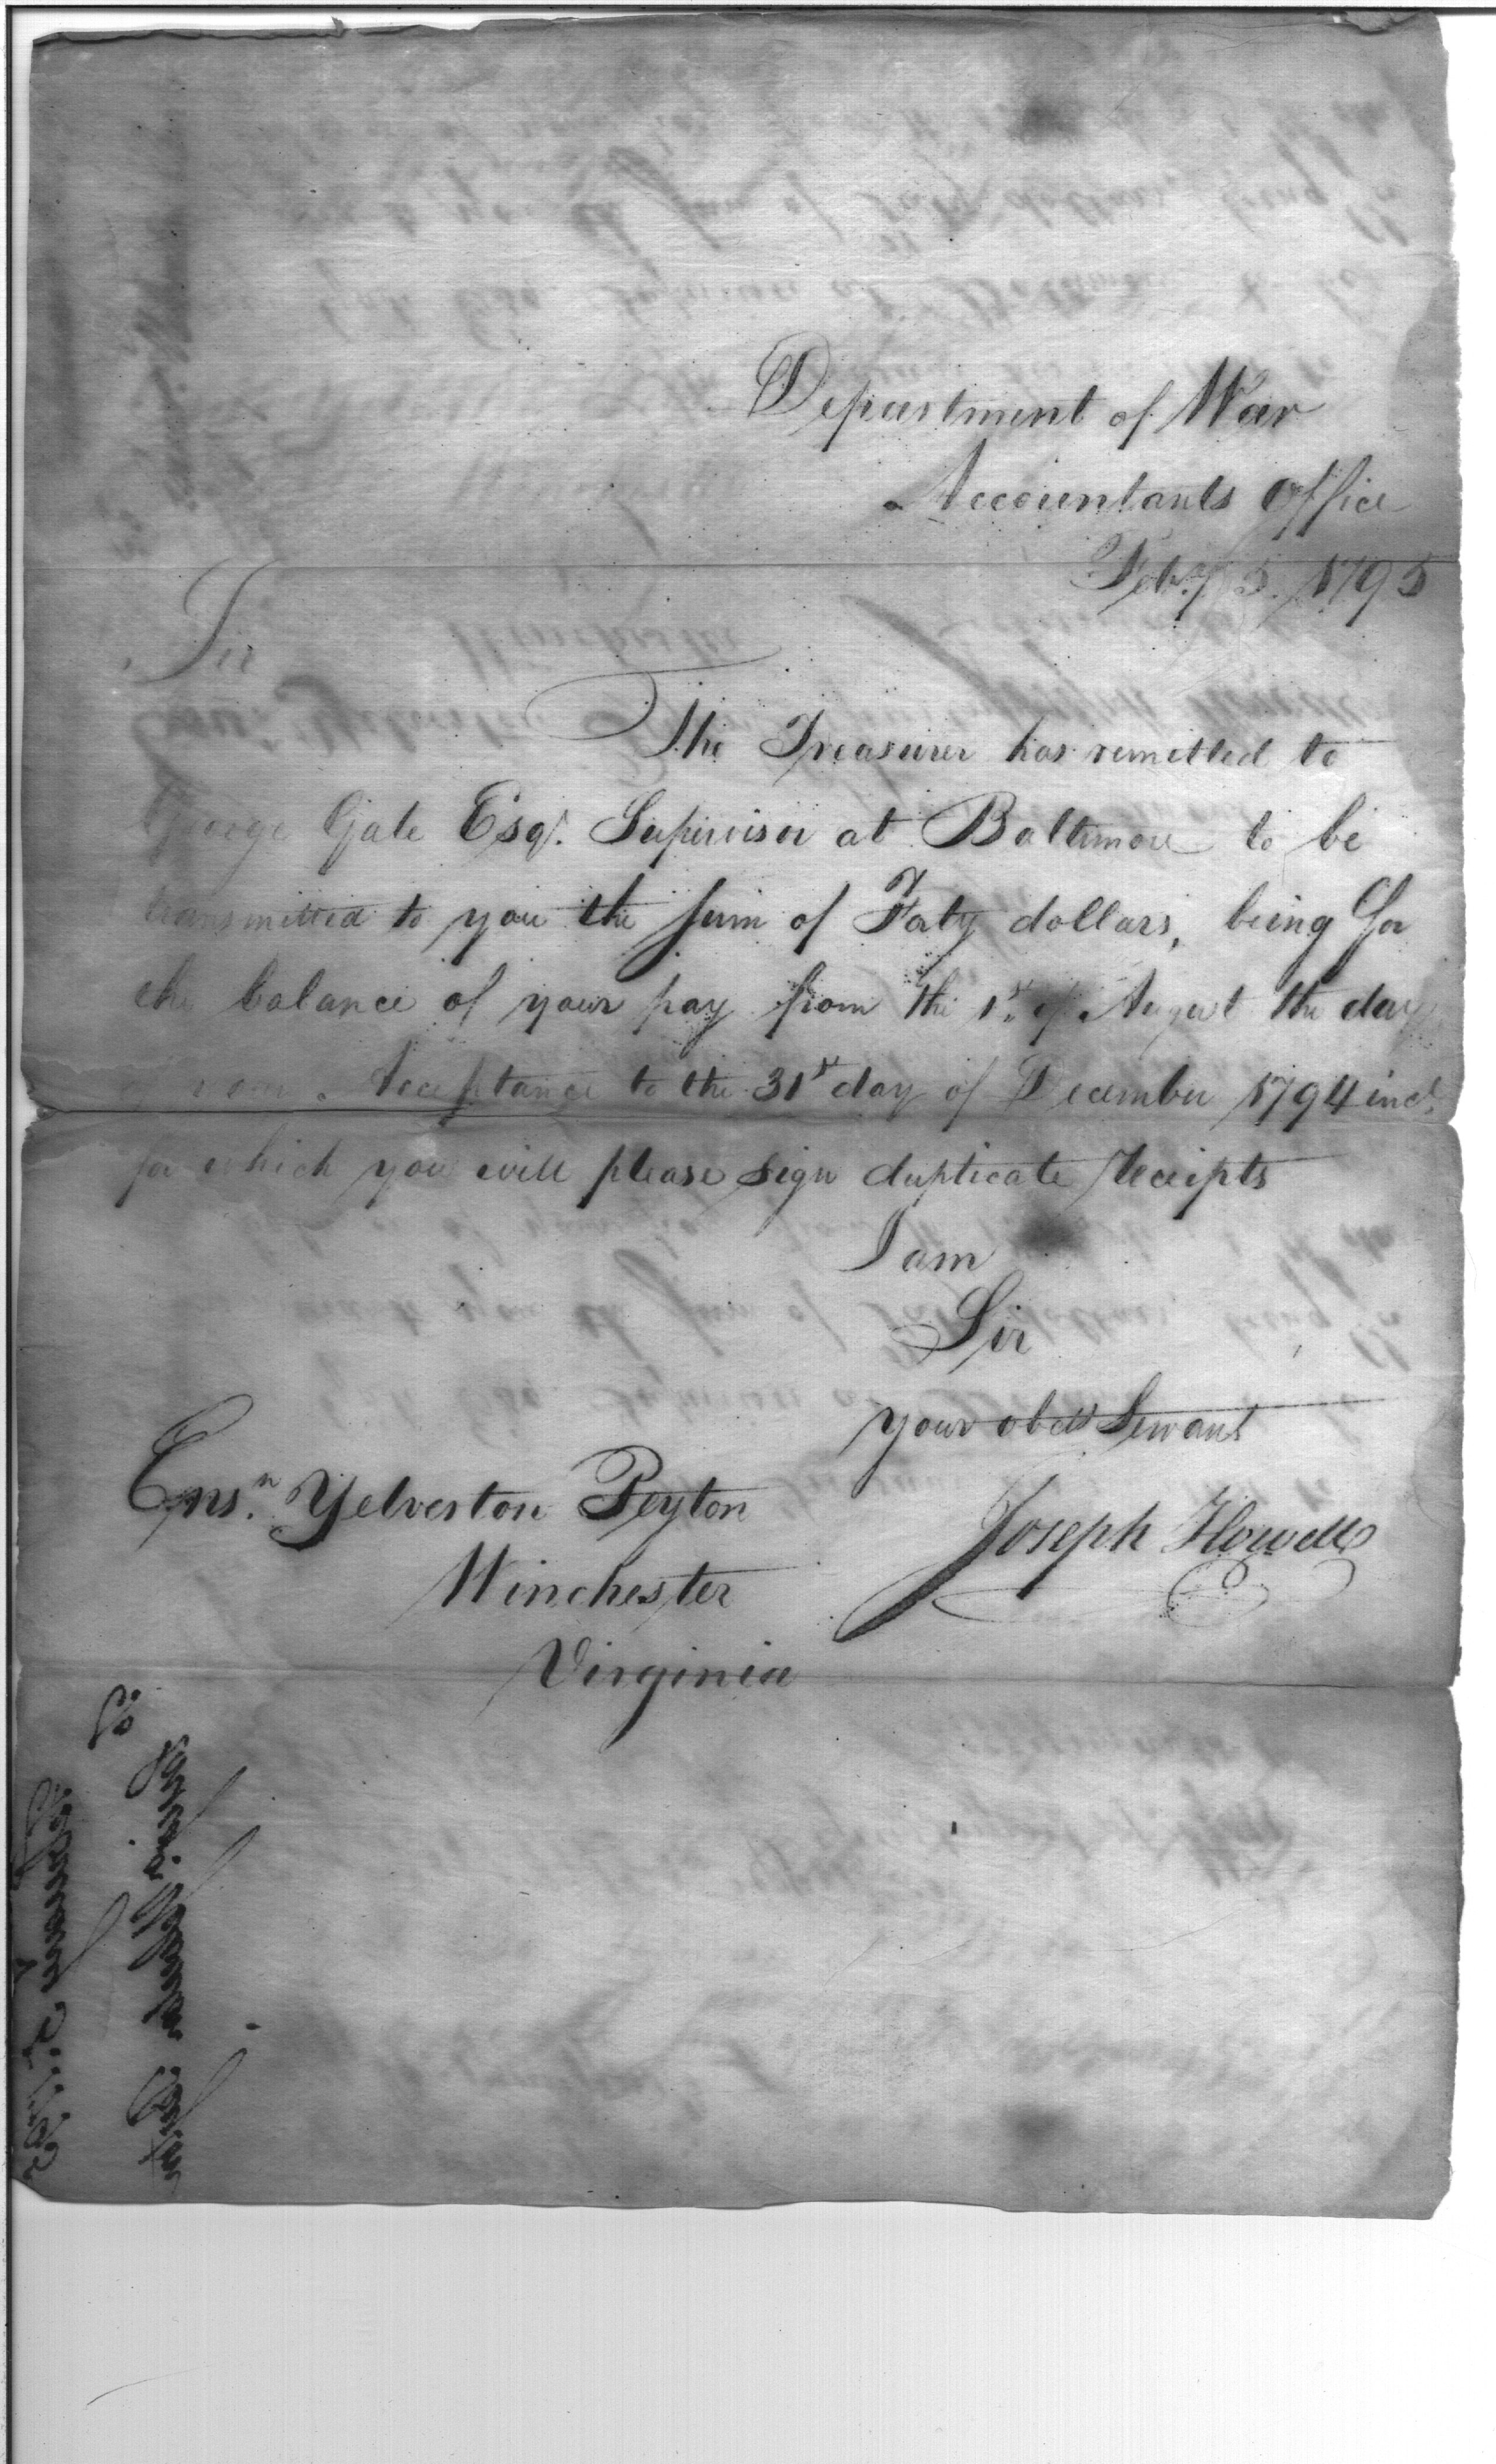 Department of War
Accountants Office
Feby 5. 1795
Sir
The Treasurer has remitted to
George Gale Esqr. Supervisor at Baltimore to be
transmitted to you the sum of Forty dollars, being for
the balance of your pay from the 1st of August the day
of your Acceptance to the 31st day of December 1794 incl.
for which you will please sign duplicate Receipts
I am
Sir
your obedt Servant
Joseph Howell
Ensn. Yelverton Peyton
Winchester
Virginia